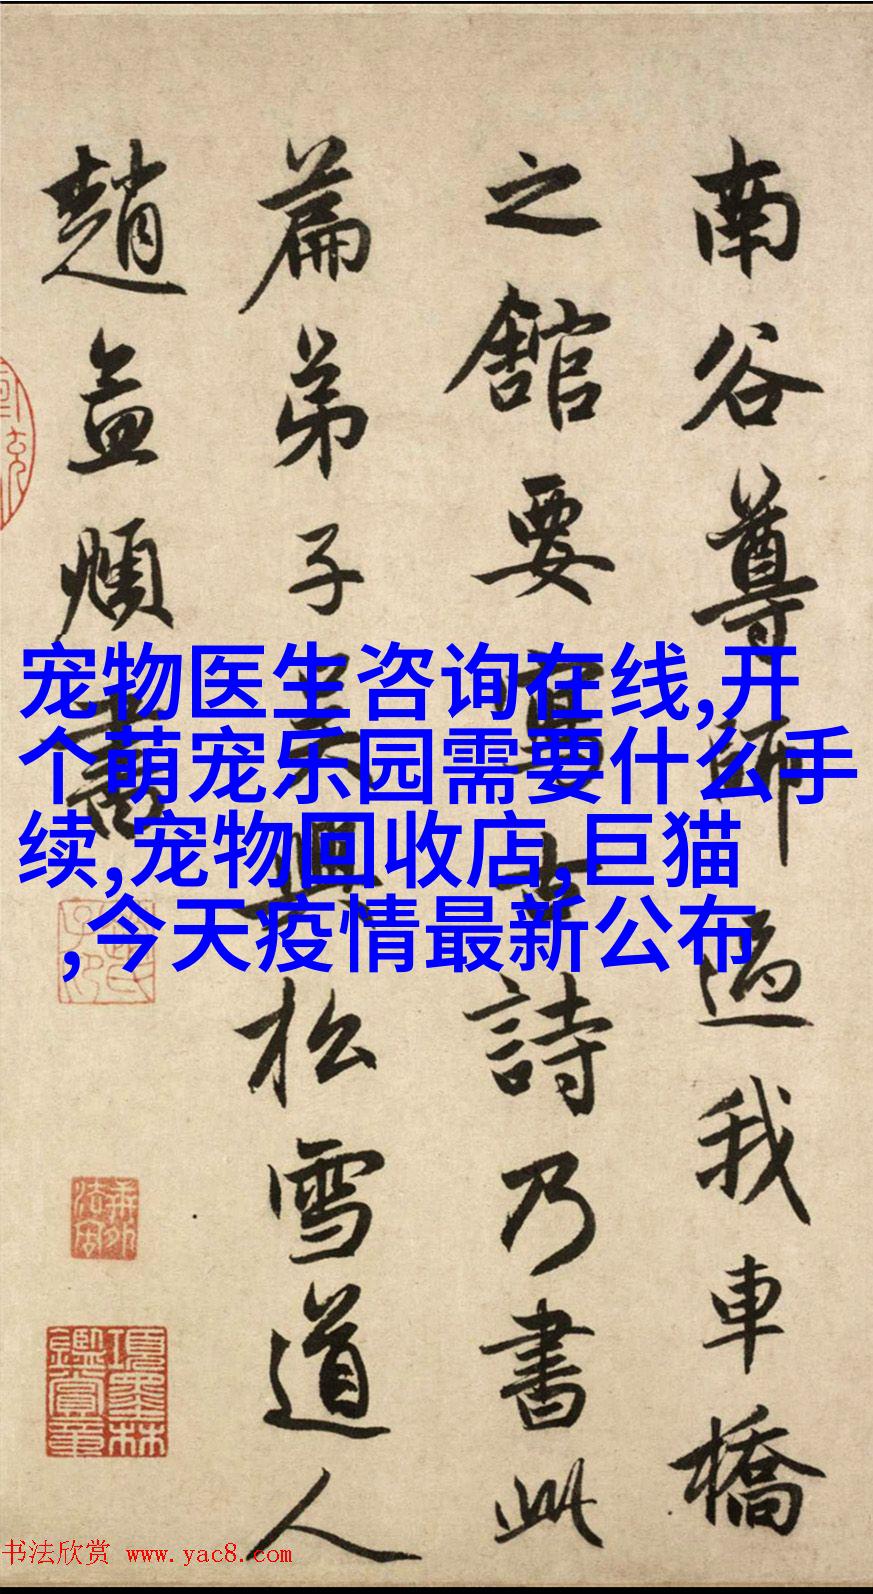 南谷尊師過我車橋
之舘要寫古詩乃書此
篇弟子吳興松雪道人
趙孟頫書
宠物医生咨询在线,开
个萌宠乐园需要什么手
续,宠物回收店,巨猫
,今天疫情最新公布
項墨林
鑑賞章
书法欣赏 www.yac8.com